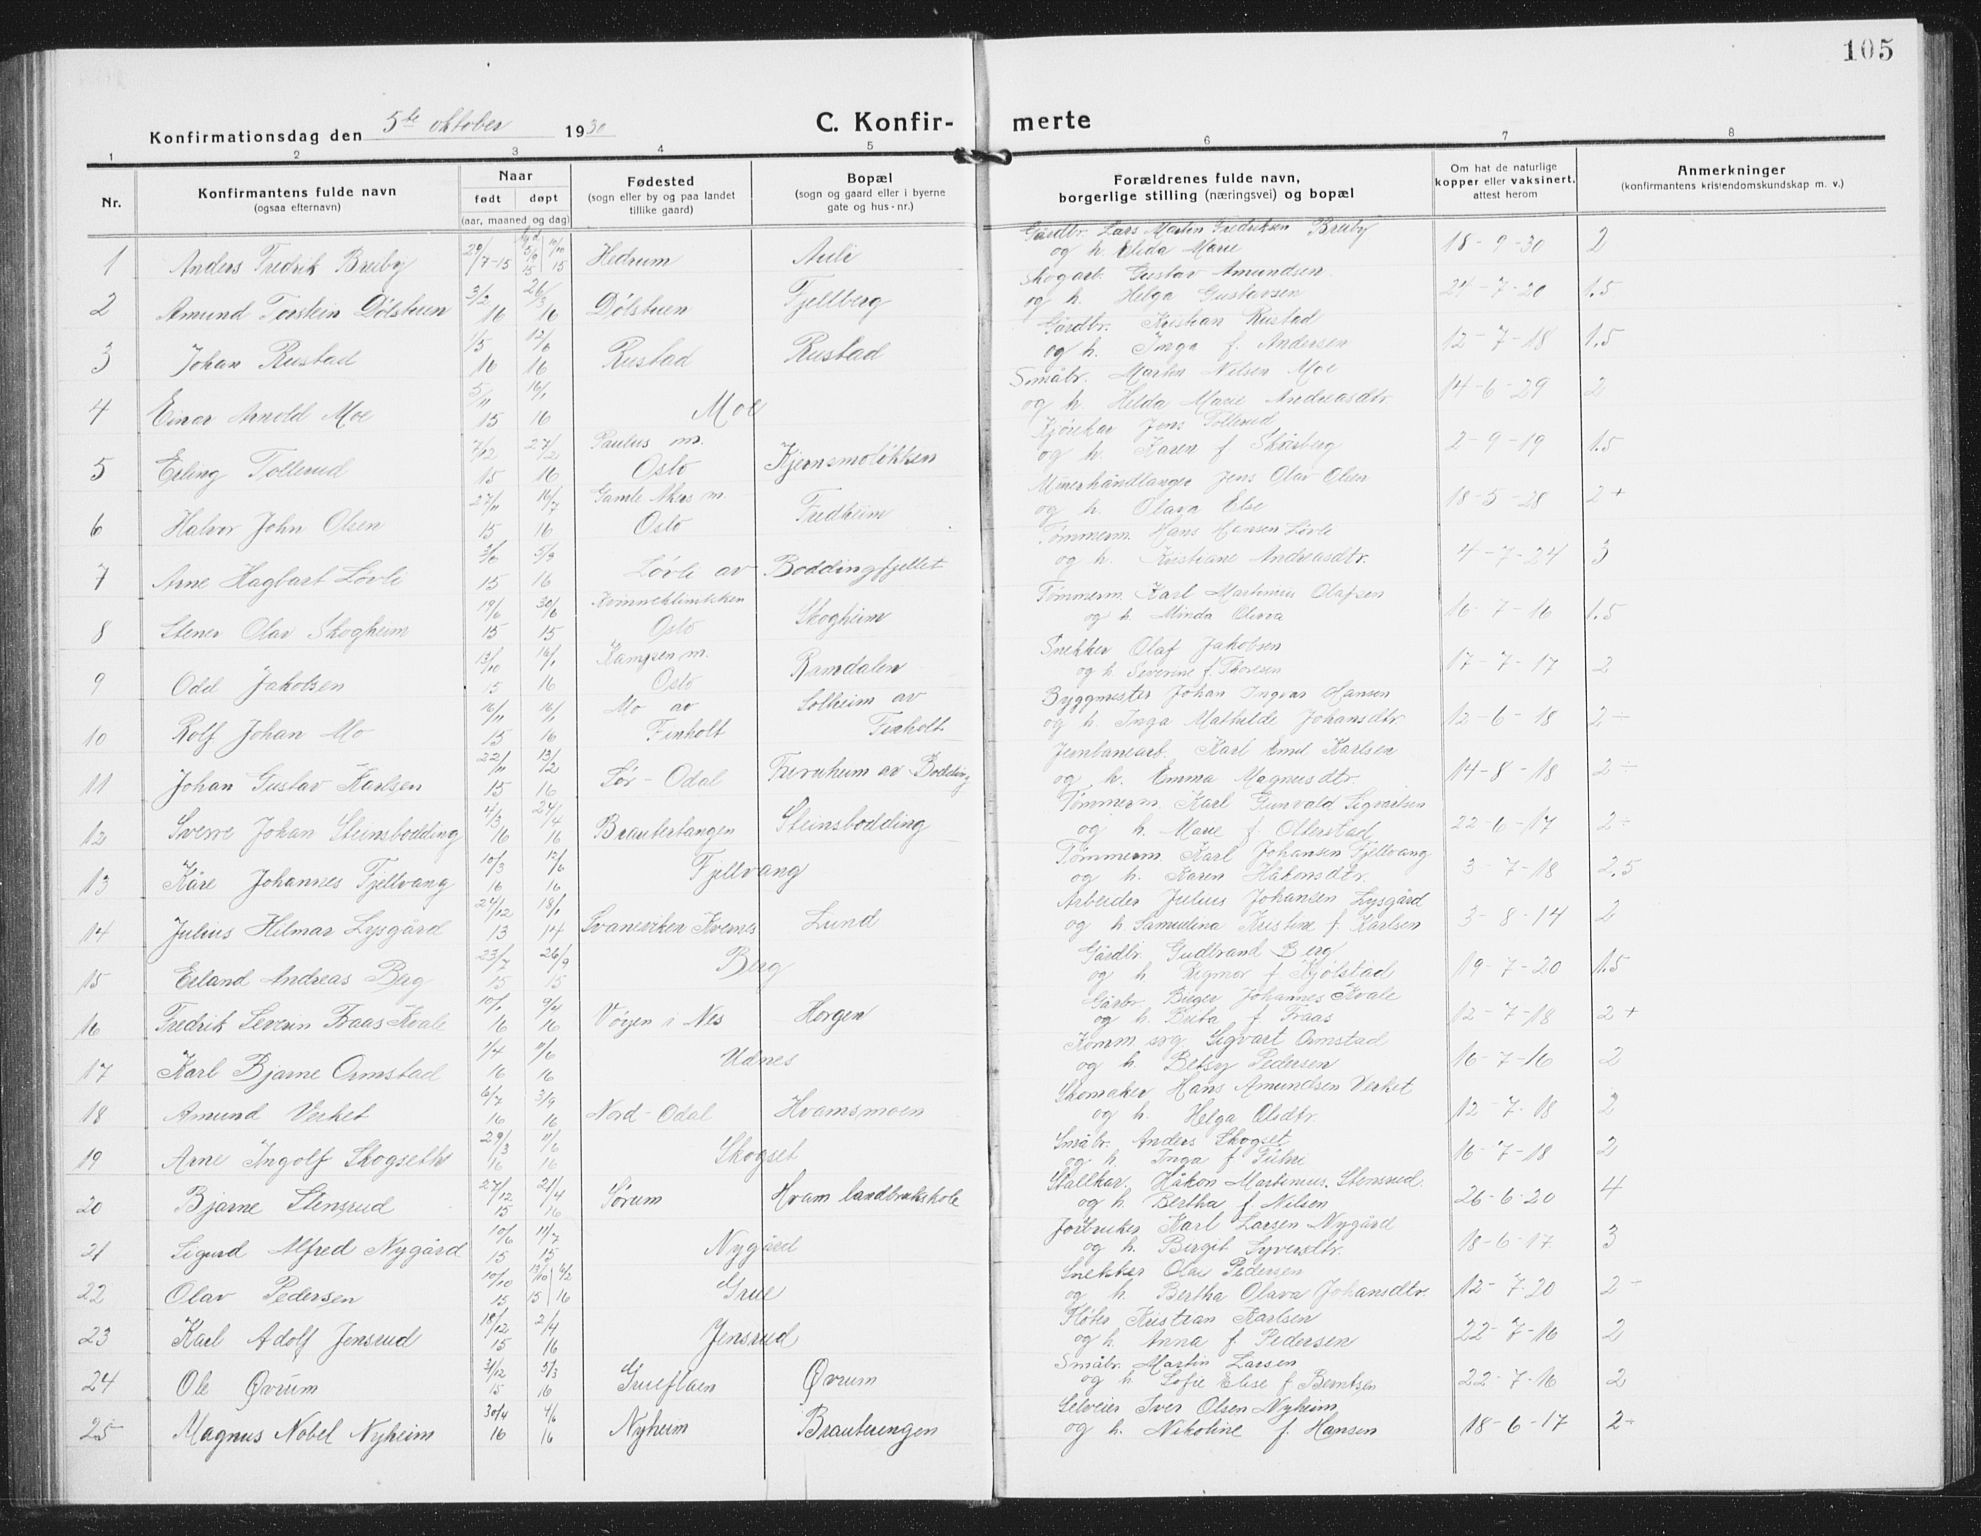 105
Konfirmationsdag den 5te oktober 1930
C. Konfir- merte
1 2 3 4 5 6 7 8
Nr.
Konfirmantens fulde navn
(ogsaa efternavn)
Naar
født døpt
(aar, maaned og dag)
Fødested
(sogn eller by og paa landet
tillike gaard)
Bopæl
(sogn og gaard eller i byerne
gate og hus-nr.)
Forældrenes fulde navn,
borgerlige stilling (næringsvei) og bopæl
Om hat de naturlige
kopper eller vaksinert.
attest herom
Anmerkninger
(konfirmantens kristendomskundskap m. v.)
Gårdbr. Lars Martin Fredriksen Breiby
1 Anders Fredrik Breiby 29/7-15 Hedrum Auli og h. Elida Marie 18-9-30 2
Skogarb. Gustav Amundsen
2 Amund Torstein Dølstuen 3/2 16 26/3 16 Dølstuen Fjellberg og h. Helga Gustavsen 24-7-20 1.5
Gårdbr. Kristian Rustad
3 Johan Rustad 1/5 16 12/6 16 Rustad Rustad og h. Inga f. Andersen 12-7-18 1.5
Småbr. Martin Nilsen Moe
4 Einar Arnold Moe 5/11 15 16/1 16 Moe og h. Helda Marie Andreasdtr. 14-6-29 2
Kjørekar Jens Tollerud
5 Erling Tollerud 7/12 15 27/2 16 Paulus m. Oslo Kjernsmoløkken og h. Karen f. Skårberg 2-9-19 1.5
Murerhåndlanger Jens Olav Olsen
6 Halvor John Olsen 27/11 15 16/7 16 Gamle Akers m. Oslo Fredheim og h. Olava Else 18-5-28 2+
Tømmerm. Hans Hansen Løvli
7 Arne Hagbart Løvli 15 5/3 16 Løvli av Boddingfjellet og h. Kristiane Andreasdtr. 4-7-24 3
Tømmerm. Karl Martinius Olafsen
8 Stener Olav Skogheim 19/6 15 30/6 15 Kvinneklinikken Oslo Skogheim og h. Minda Olava 16-7-16 1.5
Snekker Olaf Jakobsen
9 Odd Jakobsen 13/10 15 16/1 16 Kampen m. Oslo Ramdalen og h. Severine f. Thoresen 17-7-17 2
Byggmester Johan Ingvar Hansen
10 Rolf Johan Mo 16/11 15 16/1 16 Mo av Finholt Solheim av Finholt og h. Inga Mathilde Johansdtr. 12-6-18 2÷
Jernbanearb. Karl Emil Karlsen
11 Johan Gustav Karlsen 22/11 15 13/2 16 Sør-Odal Furuheim av Bodding og h. Emma Magnusdtr. 14-8-18 2÷
Tømmerm. Karl Gunvald Sigvartsen
12 Sverre Johan Steinsbodding 4/3 16 24/4 16 Brautertangen Steinsbodding og h. Marie f. Otterstad 22-6-17 2÷
Tømmerm. Karl Johansen Fjellvang
13 Kåre Johannes Fjellvang 10/3 16 12/6 16 Fjellvang og h. Karen Håkonsdtr. 3-7-18 2.5
Arbeider Julius Johansen Lysgård
14 Julius Hilmar Lysgård 24/12 13 18/1 14 Svaneviken Kvernes Lund og h. Samuelina Kristine f. Karlsen 3-8-14 2
Gårdbr. Gudbrand Berg
15 Erland Andreas Berg 23/7 15 26/9 15 Berg og h. Rigmor f. Kjølstad 19-7-20 1.5
Gårbr. Birger Johannes Kvale
16 Fredrik Severin Fraas Kvale 10/1 16 9/4 16 Vøyen i Nes Horgen og h. Berta f. Fraas 12-7-18 2+
Komm. ing. Sigvart Ormstad
17 Karl Bjarne Ormstad 1/4 16 11/6 16 Udnes og h. Betsy Pedersen 16-7-16 2
Skomaker Hans Amundsen Verket
18 Amund Verket 6/7 16 3/9 16 Nord-Odal Hvamsmoen og h. Helga Olsdtr. 12-7-18 2
Småbr. Anders Skogset
19 Arne Ingolf Skogseth 29/3 16 11/6 16 Skogset og h. Inga f. 16-7-18 2
Stallkar. Håkon Martinius Stensrud
20 Bjarne Stensrud 27/12 15 21/4 16 Sørum Hvam landbrukskole og h. Bertha f. Nilsen 26-6-20 4
Jorbruker Karl Larsen Nygård
21 Sigurd Alfred Nygård 10/6 15 11/7 15 Nygård og h. Birgit Syversdtr. 18-6-17 3
Snekker Olai Pedersen
22 Olav Pedersen 10/10 15 13/10 15 6/2 16 Grue og h. Bertha Olava Johansdtr. 12-7-20 2÷
Fløter Kristian Karlsen
23 Karl Adolf Jensrud 18/12 15 2/4 16 Jensrud og h. Anna f. Pedersen 22-7-16 2
Småbr. Martin Larsen
24 Ole Øvrum 31/12 15 5/3 16 Grueflaen Øvrum og h. Sofie Elise f. Berntsen 22-7-16 2
Selveier Iver Olsen Nyheim
25 Magnus Nobel Nyheim 30/4 16 4/6 16 Nyheim Brauterengen og h. Nikoline f. Hansen 18-6-17 2÷